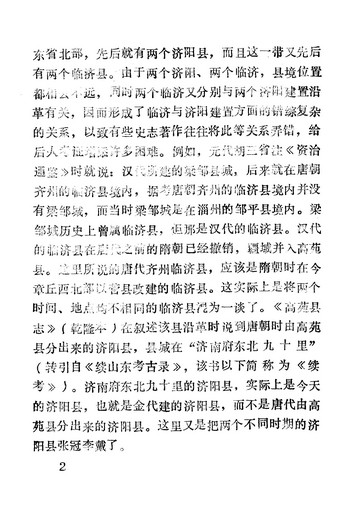 东省北部，先后就有两个济阳县，而且这一带又先后
有两个临济县。由于两个济阳、两个临济，县境位置
都相去不远，同时两个临济又分别与两个济阳建置沿
革有关，因而形成了临济与济阳建置方面的错综复杂
的关系，以致有些史志著作往往将此等关系弄错，给
后人考证增添许多困难。例如，元代胡三省注《资治
通鉴》时就说：汉代所建的梁邹县城，后来就在唐朝
齐州的临济县境内，据考唐朝齐州的临济县境内并没
有梁邹城，而当时梁邹城是在淄州的邹平县境内。梁
邹城历史上曾属临济县，但那是汉代的临济县。汉代
的临济县在唐代之前的隋朝已经撤销，疆域并入高苑
县。这里所说的唐代齐州临济县，应该是隋朝时在今
章丘西北部以营县改建的临济县。这实际上是将两个
时间、地点均不相同的临济县混为一谈了。《高苑县
志》（乾隆本）在叙述该县沿革时说到唐朝时由高苑
县分出来的济阳县，县城在“济南府东北九十里”
（转引自《续山东考古录》，该书以下简称为《续
考》）。济南府东北九十里的济阳县，实际上是今天
的济阳县，也就是金代建的济阳县，而不是唐代由高
苑县分出来的济阳县。这里又是把两个不同时期的济
阳县张冠李戴了。
2